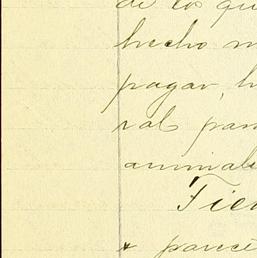 de lo qu
hecho m
pagar, h
ral par
animale
Tie
parec